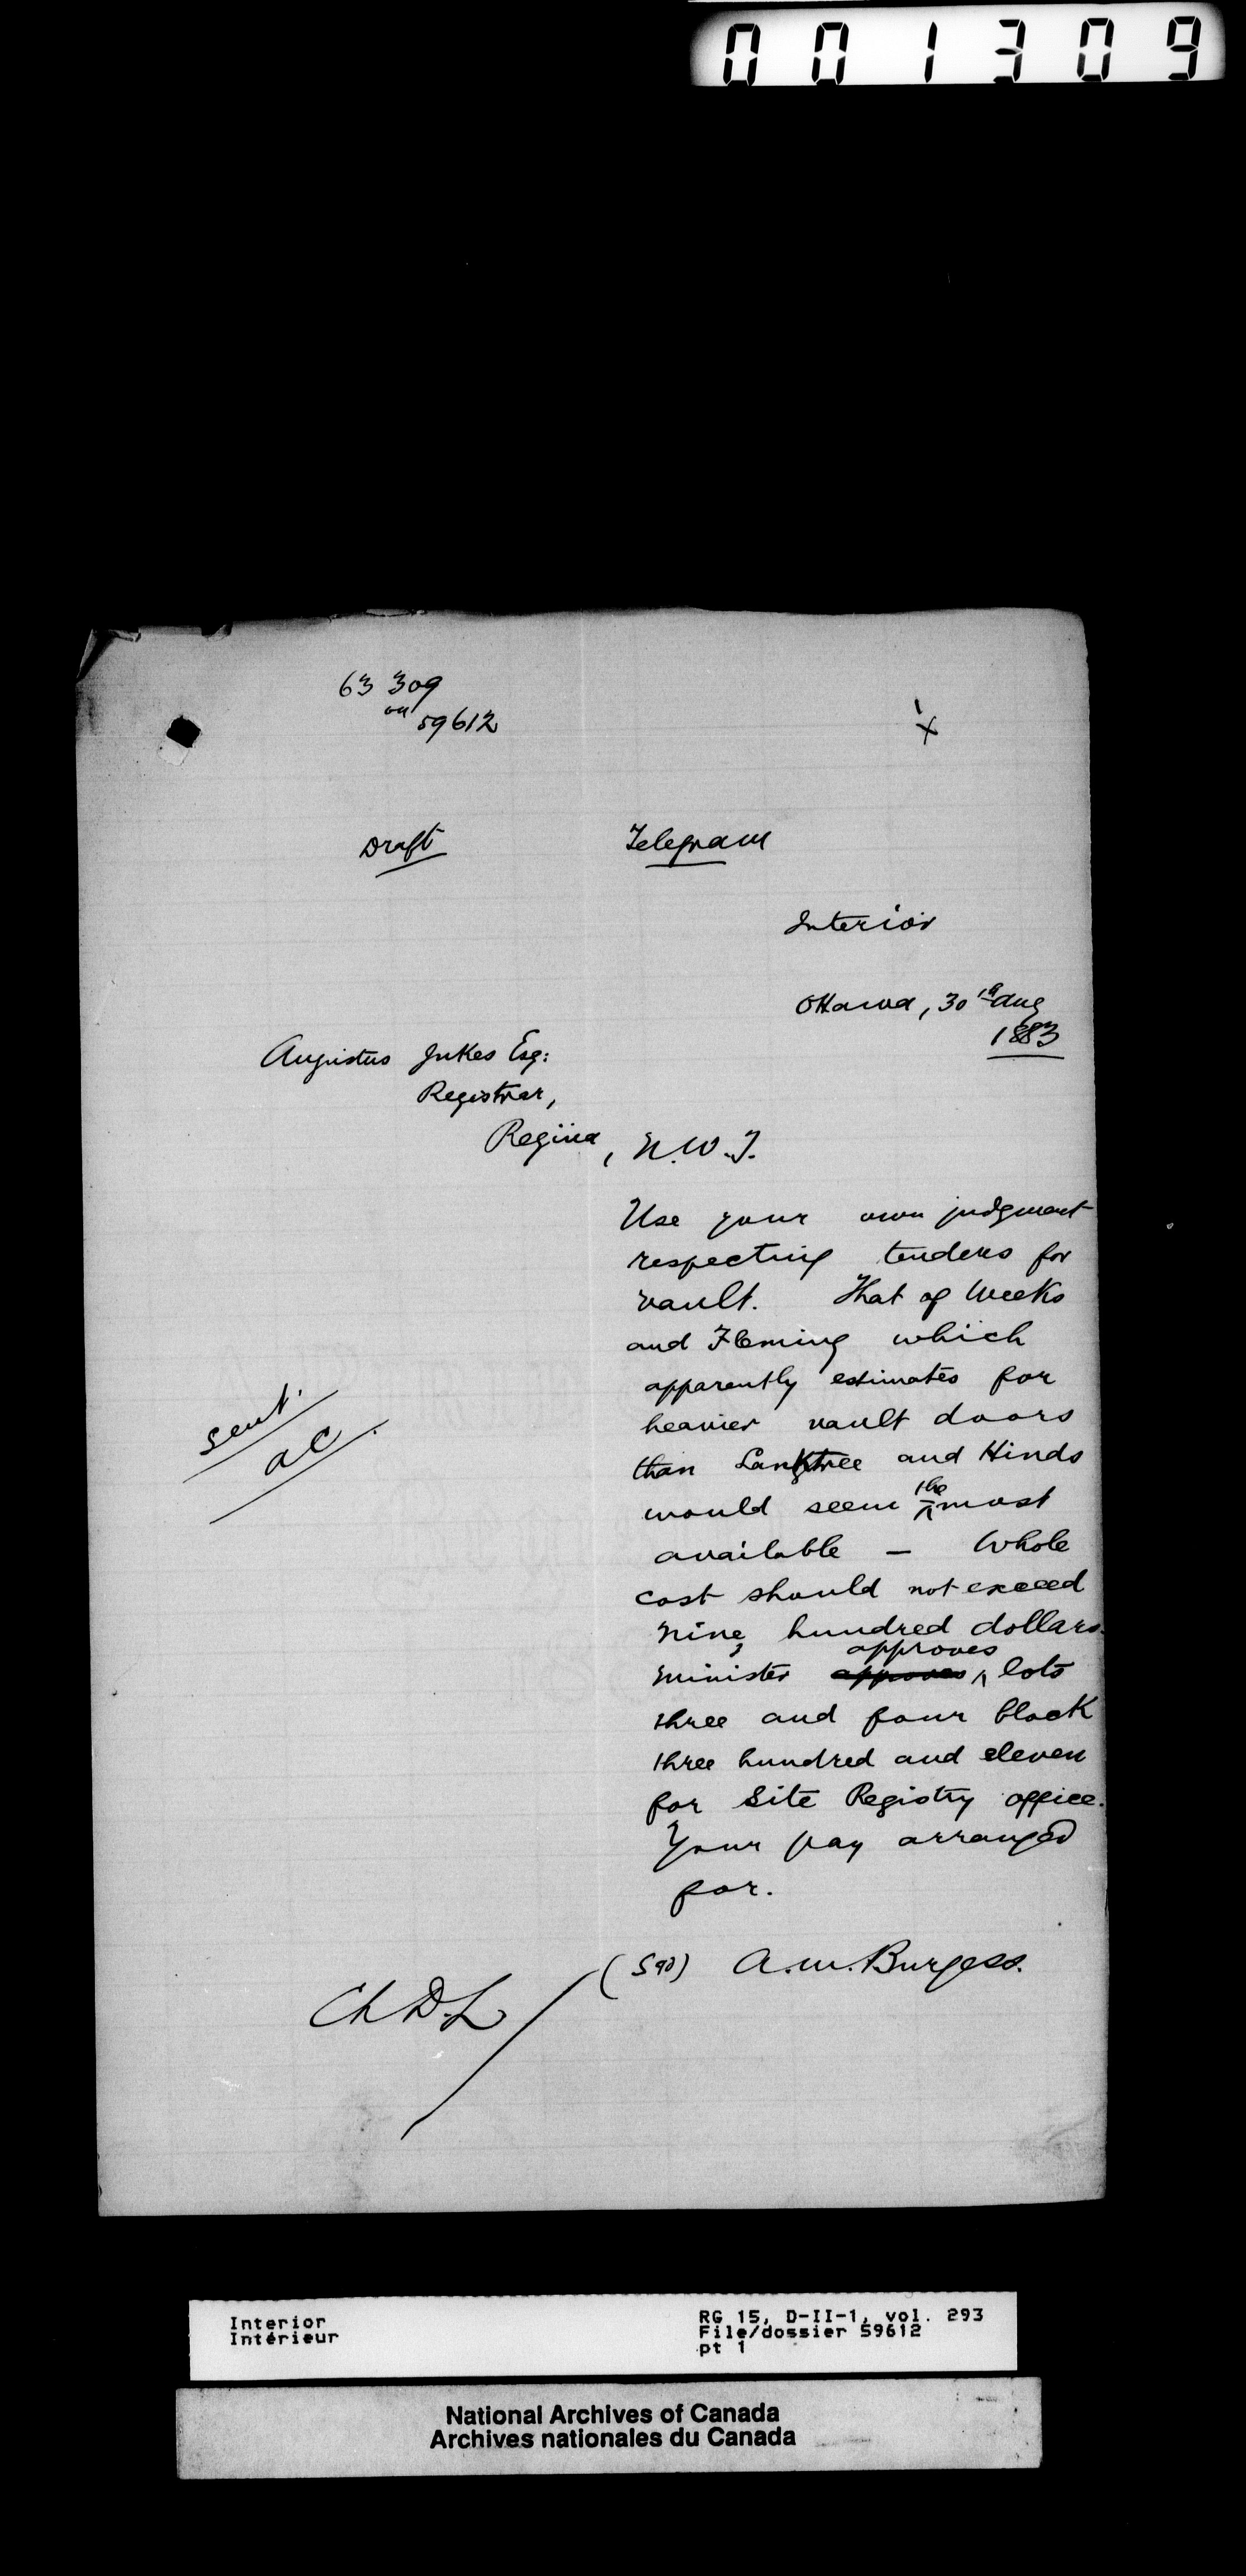 001309
63 309
on 59612
x
Draft
Telegram
Interior
Ottawa, 30th Aug
1883
Augustus Jukes Esq:
Registrar,
Regina, N.W.T.
Use your own judgment
respecting tenders for
vault. That of Weeks
and Fleming which
apparently estimates for
heavier vault doors
than Langtree and Hinds
would seem the most
available — Whole
cost should not exceed
nine hundred dollars.
Minister approves approves lots
three and four block
three hundred and eleven
for Site Registry office.
Your pay arranged
for.
sent.
(Sgd) A.M. Burgess.
Interior
Intérieur
RG 15, D-II-1, vol. 293
File/dossier 59612
pt 1
National Archives of Canada
Archives nationales du Canada